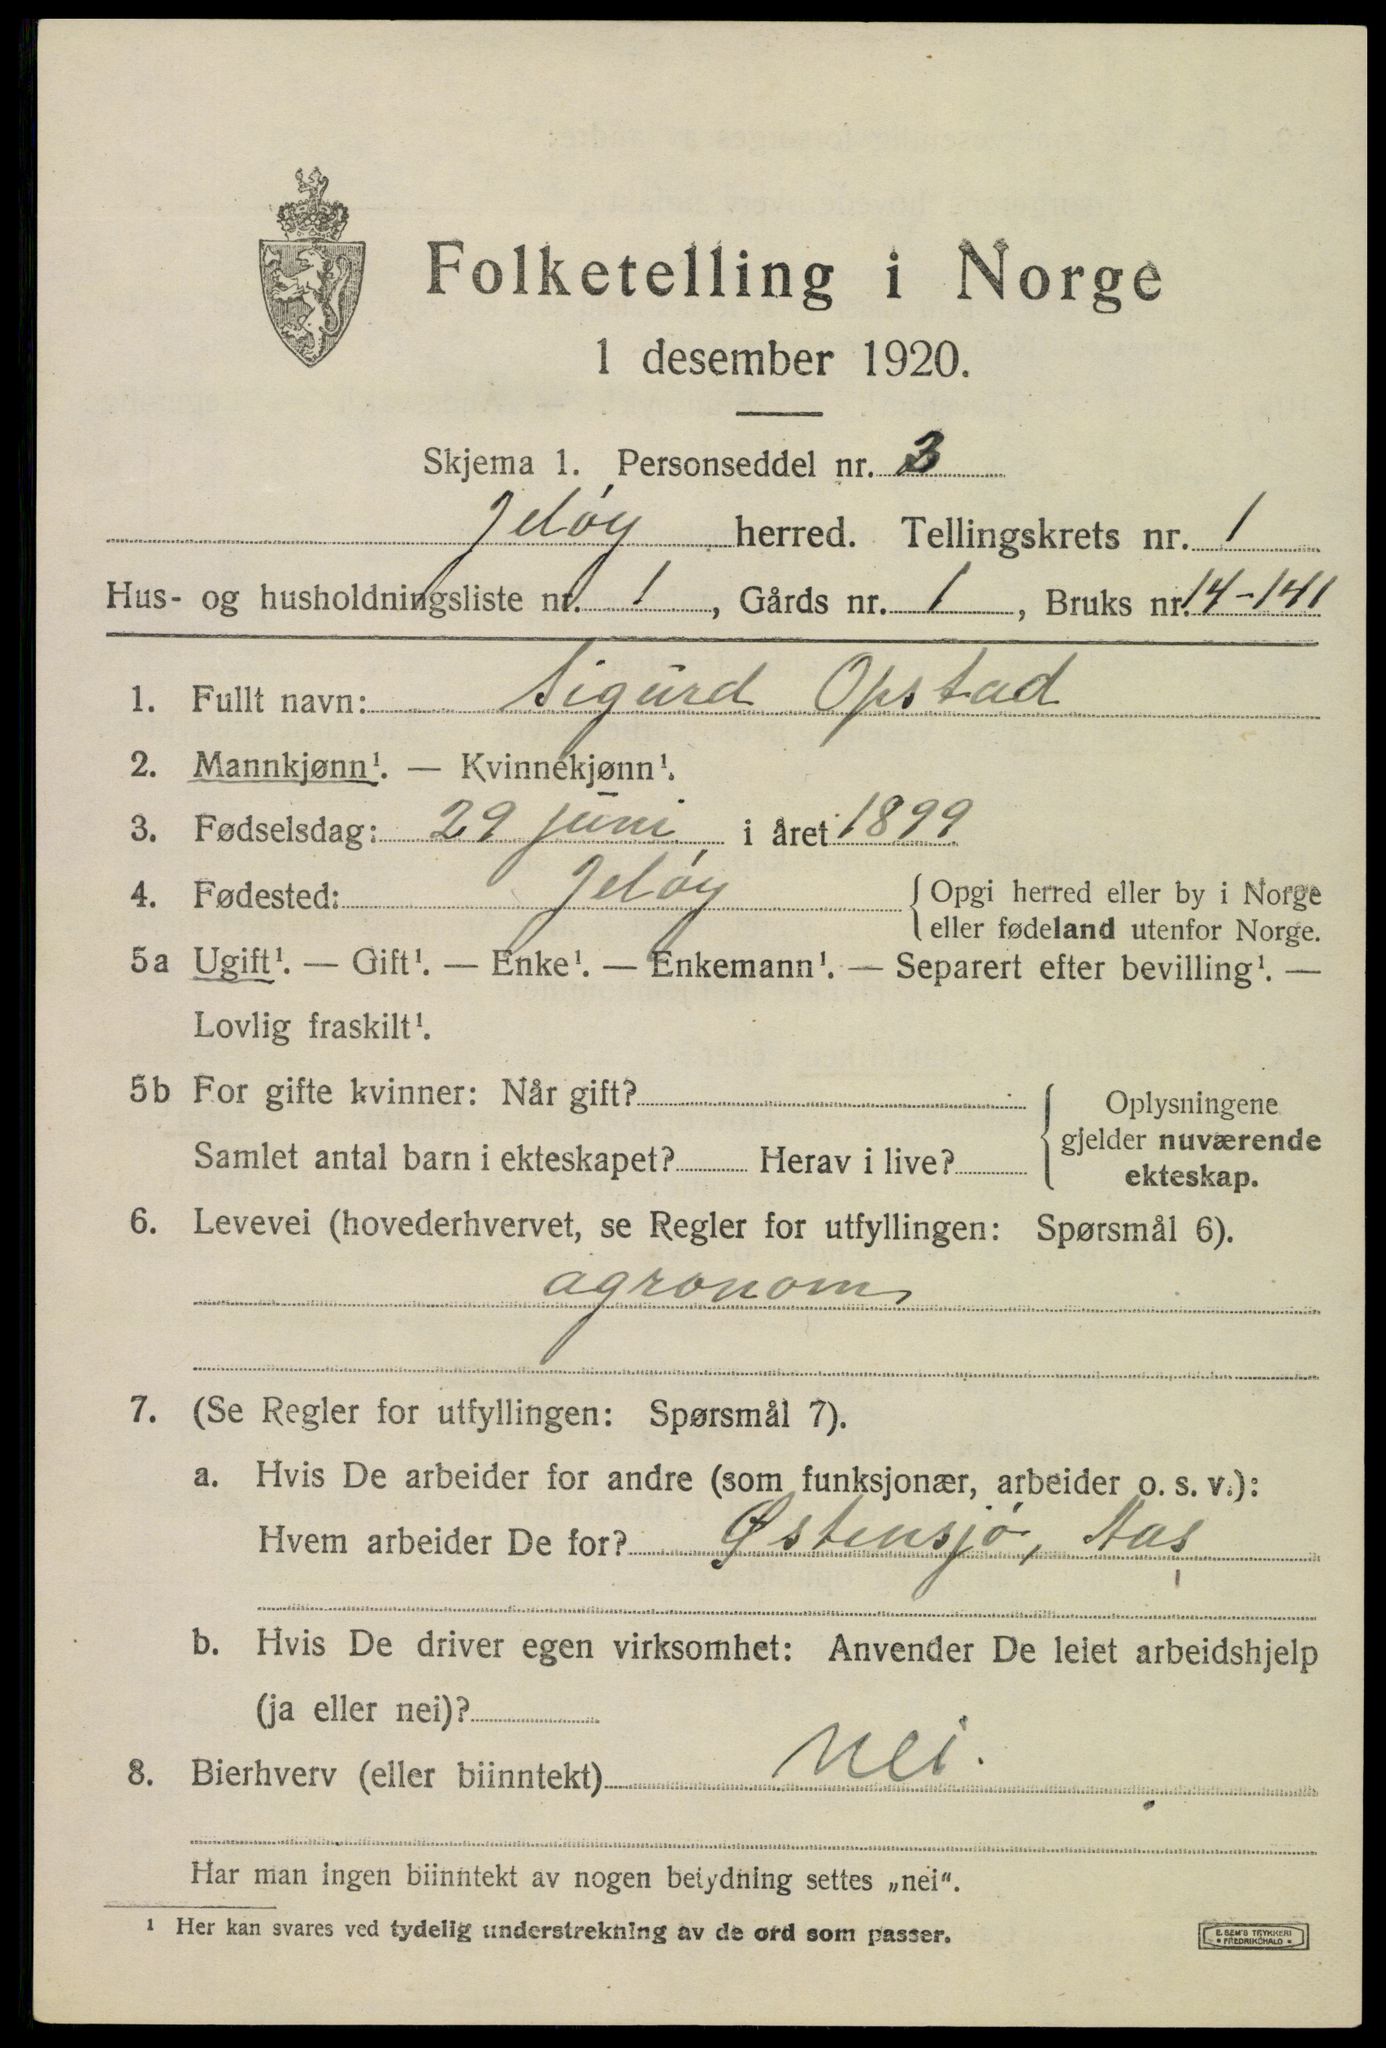 Folketelling i Norge
1 desember 1920.
Skjema 1. Personseddel nr. 3
Jeløy herred. Tellingskrets nr. 1
Hus- og husholdningsliste nr. 1, Gårds nr. 1, Bruks nr. 14-141
1. Fullt navn: Sigurd Opstad
2. Mannkjønn¹. — Kvinnekjønn¹.
3. Fødselsdag: 29 juni i året 1899
4. Fødested: Jeløy { Opgi herred eller by i Norge
eller fødeland utenfor Norge.
5a Ugift¹. — Gift¹. — Enke¹. — Enkemann¹. — Separert efter bevilling¹. —
Lovlig fraskilt¹.
5b For gifte kvinner: Når gift? { Oplysningene
gjelder nuværende
Samlet antal barn i ekteskapet? Herav i live?
ekteskap.
6. Levevei (hovederhvervet, se Regler for utfyllingen: Spørsmål 6).
agronom
7. (Se Regler for utfyllingen: Spørsmål 7).
a. Hvis De arbeider for andre (som funksjonær, arbeider o. s. v.):
Hvem arbeider De for? Østensjø, Aas
b. Hvis De driver egen virksomhet: Anvender De leiet arbeidshjelp
(ja eller nei)?
8. Bierhverv (eller biinntekt) Nei.
Har man ingen biinntekt av nogen betydning settes „nei“.
¹ Her kan svares ved tydelig understrekning av de ord som passer.
E. SEM'S TRYKKERI
• FREDRIKSHALD •